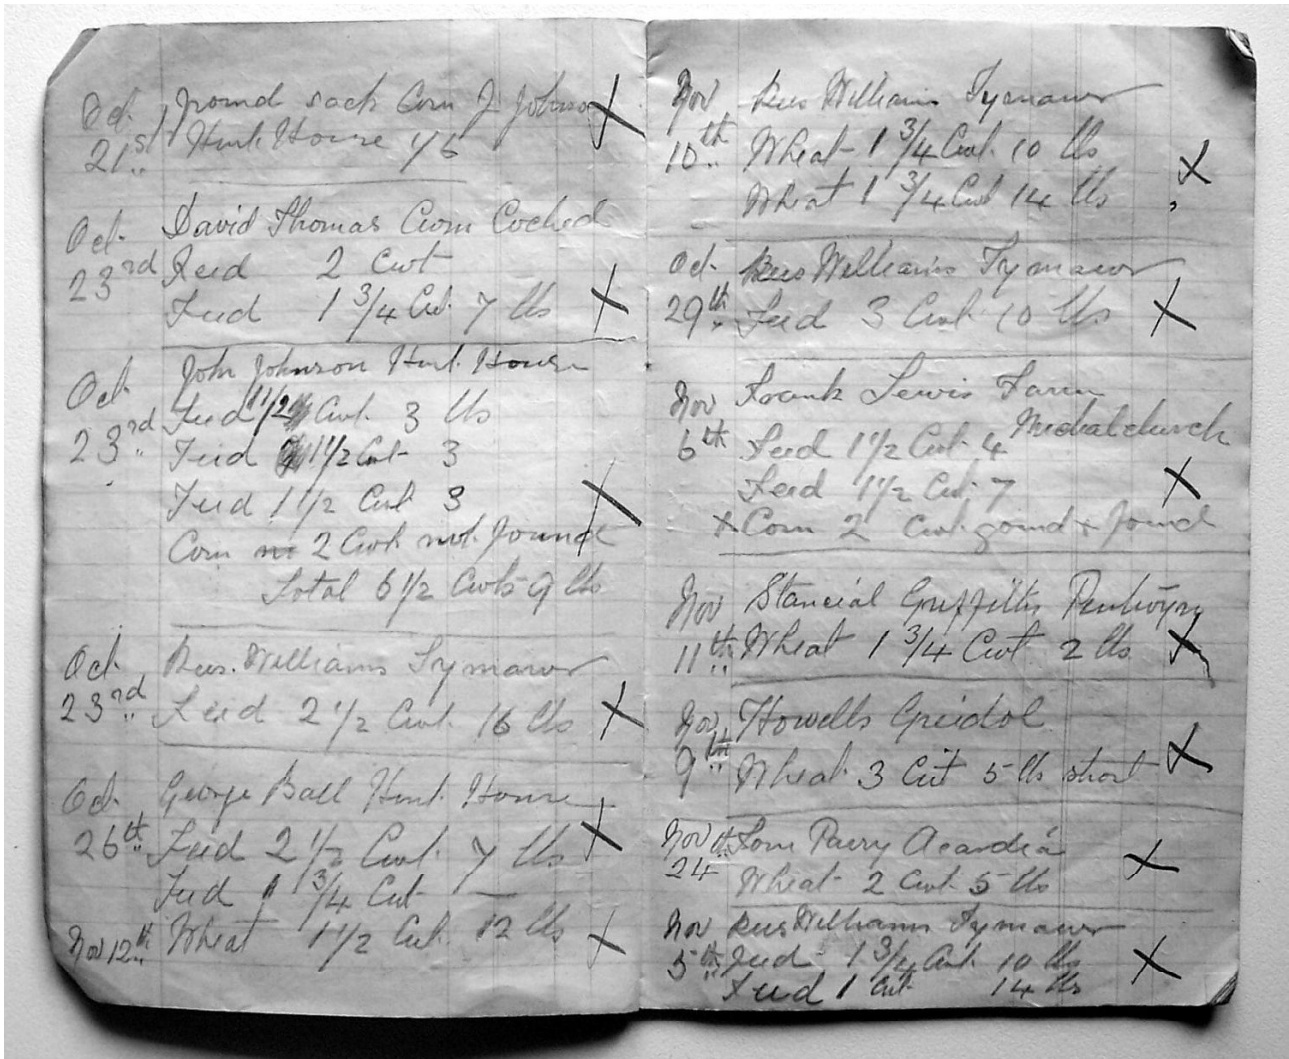 Oct. 21st found sack Corn J Johnson
Hunt House 1/6
David Thomas Cwm Coched
Oct. 23rd Feed 2 Cwt
Feed 1 3/4 Cwt. 7 lbs
John Johnson Hunt House
Oct 23rd Feed 1 1/2 Cwt. 3 lbs
Feed 1 1/2 Cwt 3
Feed 1 1/2 Cwt 3
Corn 2 Cwt not found
Total 6 1/2 Cwts 9 lbs
Oct 23rd Rees. Williams Tymawr
Feed 2 1/2 Cwt. 16 lbs
Oct. 26th George Ball Hunt House
Feed 2 1/2 Cwt. 7 lbs
Feed 1 3/4 Cwt —
Nov 12th Wheat 1 1/2 Cwt. 12 lbs
Nov 10th Rees Williams Tymawr
Wheat 1 3/4 Cwt. 10 lbs
Wheat 1 3/4 Cwt 14 lbs
Oct. 29th Rees Williams Tymawr
Feed 3 Cwt. 10 lbs
Nov 6th Frank Lewis Farm
Michalchurch
Feed 1 1/2 Cwt. 4
Feed 1 1/2 Cwt. 7
x Corn 2 Cwt. + found
Nov 11th Griffiths Penlwyn
Wheat 1 3/4 Cwt. 2 lbs
Nov 9th Howells Greidol
Wheat 3 Cwt 5 lbs short
Nov 24th Tom Parry Acardia
Wheat 2 Cwt. 5 lbs
Nov 5th Rees Williams Tymawr
Feed 1 3/4 Cwt. 10 lbs
Feed 1 Cwt 14 lbs